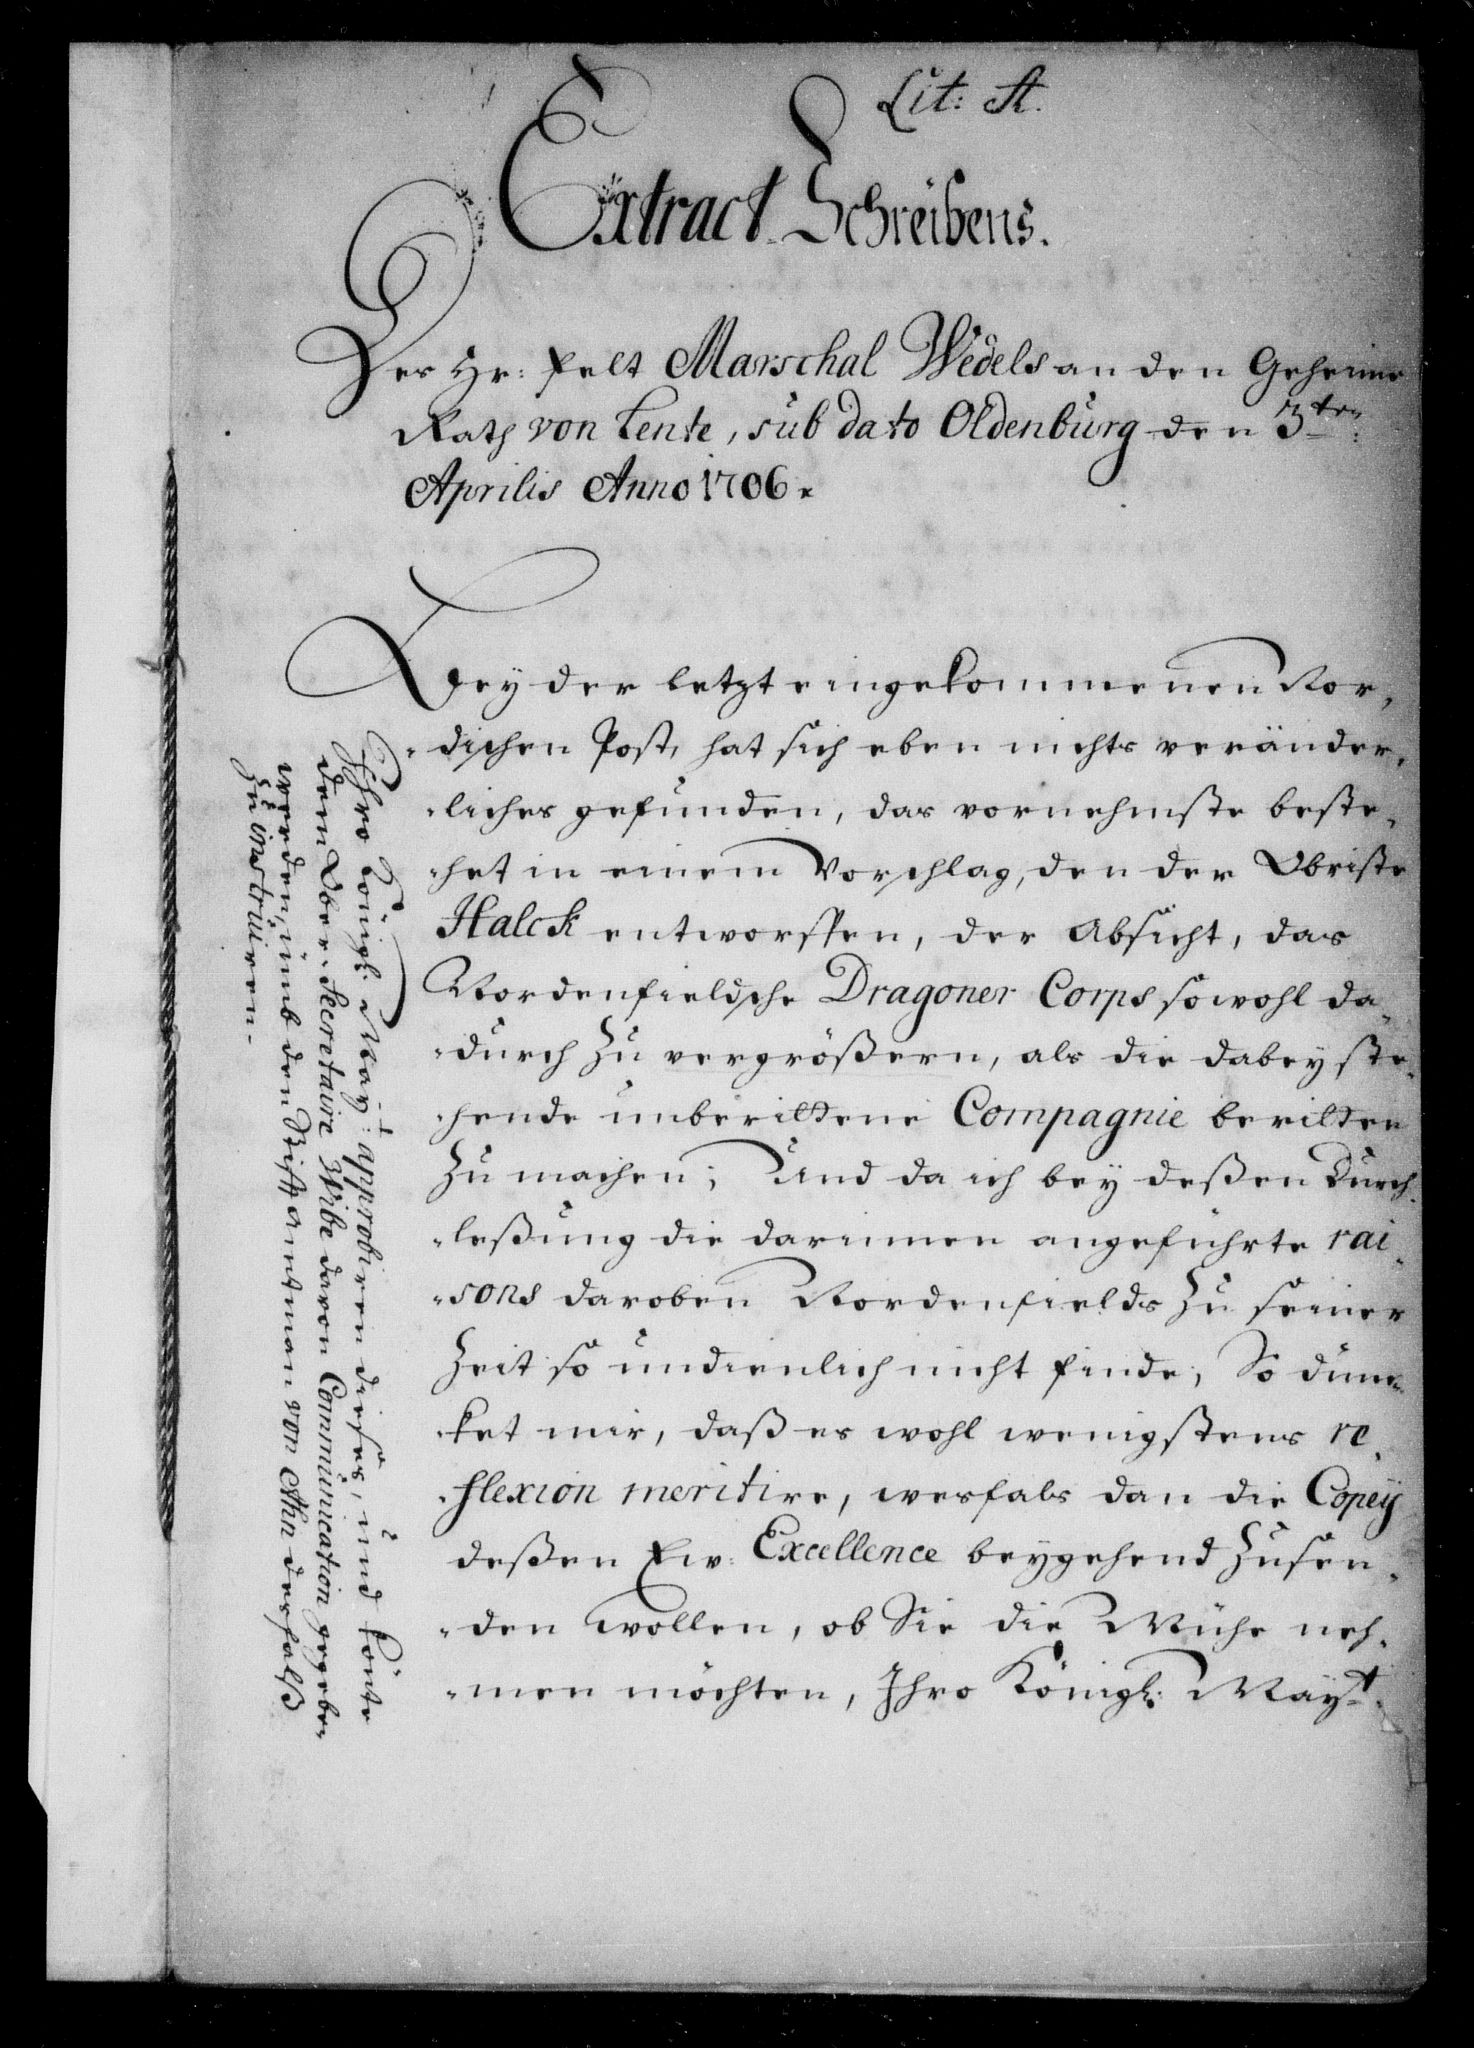 Lit: A.
Extract Schreibens.
Des Hr: Felt Marschal Wedels an den Geheime
Rath von Lente, sub dato Oldenburg den 3ten:
Aprilis Anno 1706.
Bey der letzt eingekommenen Nor,
dischen Post, hat sich eben nichts veränder,
liches gefunden, das vornehmste beste,
het in einem Vorschlag, den der Obriste
Halck entworffen, der Absicht, das
Nordenfieldsche Dragoner Corps sowohl da,
durch zu vergrößern, als die dabey ste,
hende unberittene Compagnie beritten
zu machen; Und da ich bey deßen Durch,
leßung die darinnen angeführte rai,
sons daroben Nordenfields zu seiner
Zeit so undienlich nicht finde, So dün,
ket mir, daß es wohl wenigstens re,
flexion meritire, wesfals dan die Copey
deßen Ew: Excellence beygehend zusen,
den wollen, ob Sie die Mühe neh,
men möchten, Ihro Königl: Mayt:
Ihro Königl: Mayt: approbiren dieses, und könte
dem Ober-Secretaire Wibe davon Communication gegeben
werden, umb den Stifftamtman von Ahn desfalß
zu instruiren.